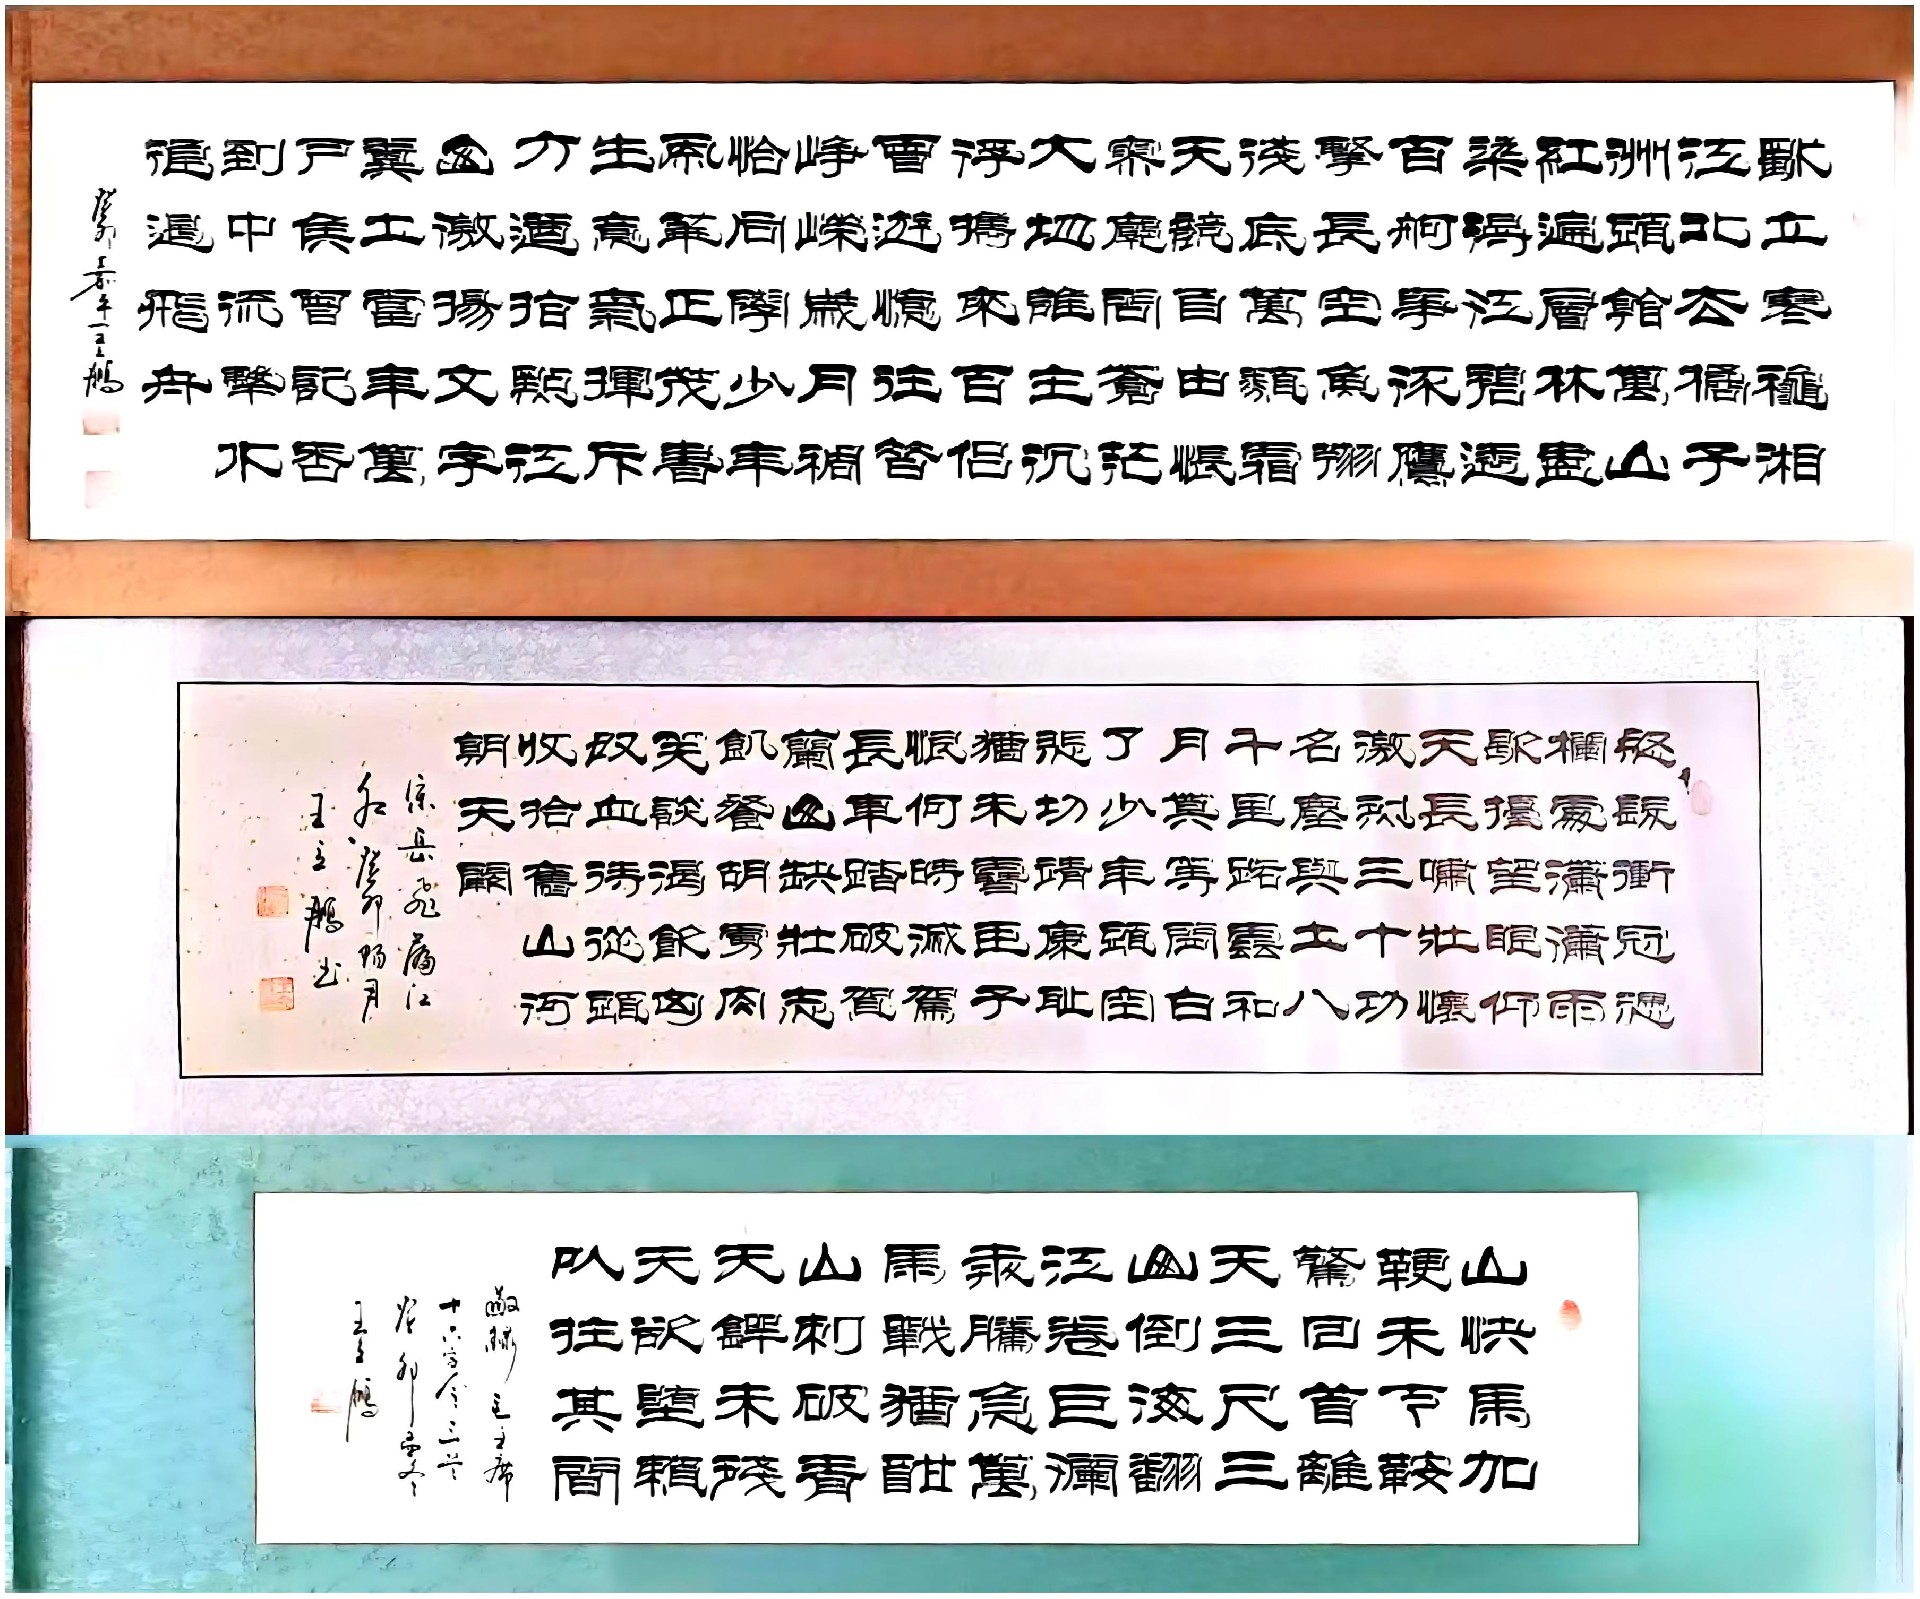 獨立寒秋湘
江北去橘子
洲頭看萬山
紅遍層林盡
染漫江碧透
百舸爭流鷹
擊長空魚翔
淺底萬類霜
天競自由悵
寥廓問蒼茫
大地誰主沉
浮攜來百侶
曾遊憶往昔
崢嶸歲月稠
恰同學少年
風華正茂書
生意氣揮斥
方遒指點江
山激揚文字
糞土當年萬
戶侯曾記否
到中流擊水
浪遏飛舟
癸卯嘉平王立鵬
怒髮衝冠憑
欄處瀟瀟雨
歇擡望眼仰
天長嘯壯懷
激烈三十功
名塵與土八
千里路雲和
月莫等閒白
了少年頭空
悲切靖康恥
猶未雪臣子
恨何時滅駕
長車踏破賀
蘭山缺壯志
飢餐胡虜肉
笑談渴飲匈
奴血待從頭
收拾舊山河
朝天闕
宋岳飛滿江
紅癸卯暢月
王立鵬書
山快馬加
鞭未下鞍
驚回首離
天三尺三
山倒海翻
江卷巨瀾
奔騰急萬
馬戰猶酣
山刺破青
天鍔未殘
天欲墮賴
以拄其間
敬錄毛主席
十六字令三首
癸卯冬
王立鵬